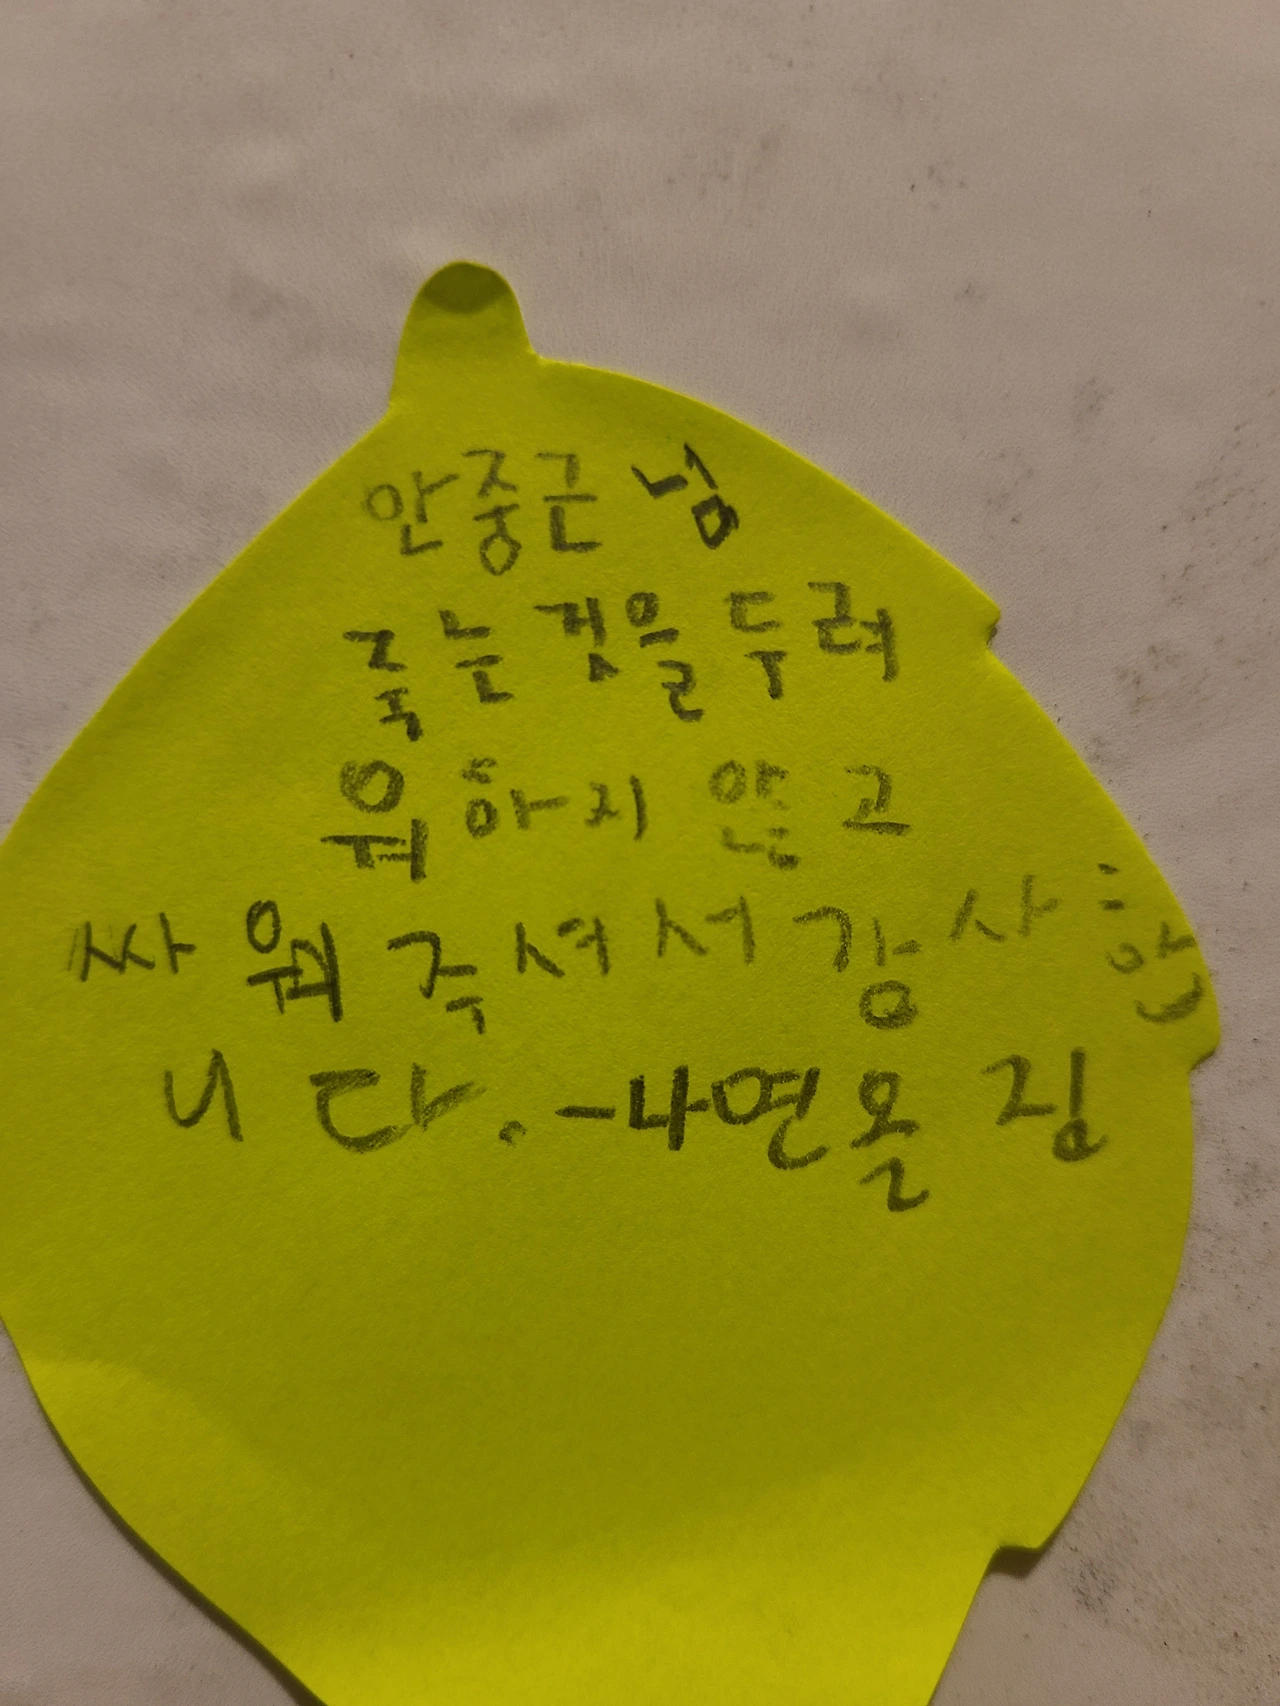 안중근 님
죽는 것을 두려
워 하지 않고
싸워 주셔서 감사합
니다. -나연올림